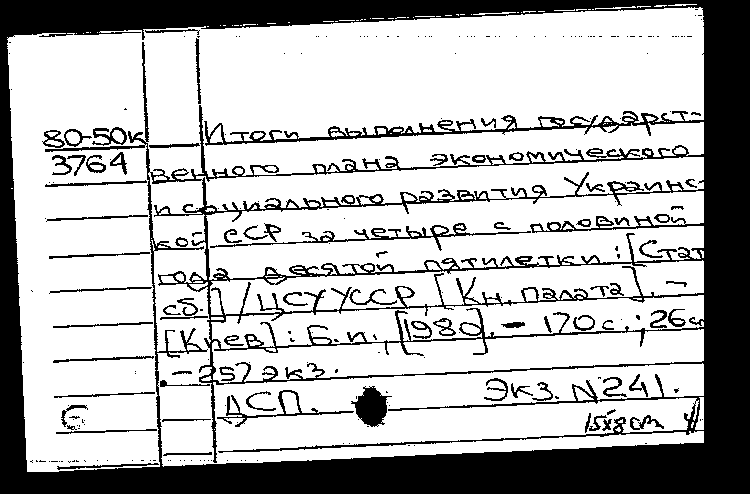 80-50к Итоги выполнения государст-
3764 венного плана экономического
и социального развития Украинс-
кой ССР за четыре с половиной
года десятой пятилетки : [Стат.
сб.] / ЦСУ УССР, [Кн. палата]. –
[Киев] : Б.и., [1980]. – 170 с. ; 26 см
. – 257 экз.
ДСП. Экз. N 241.
6